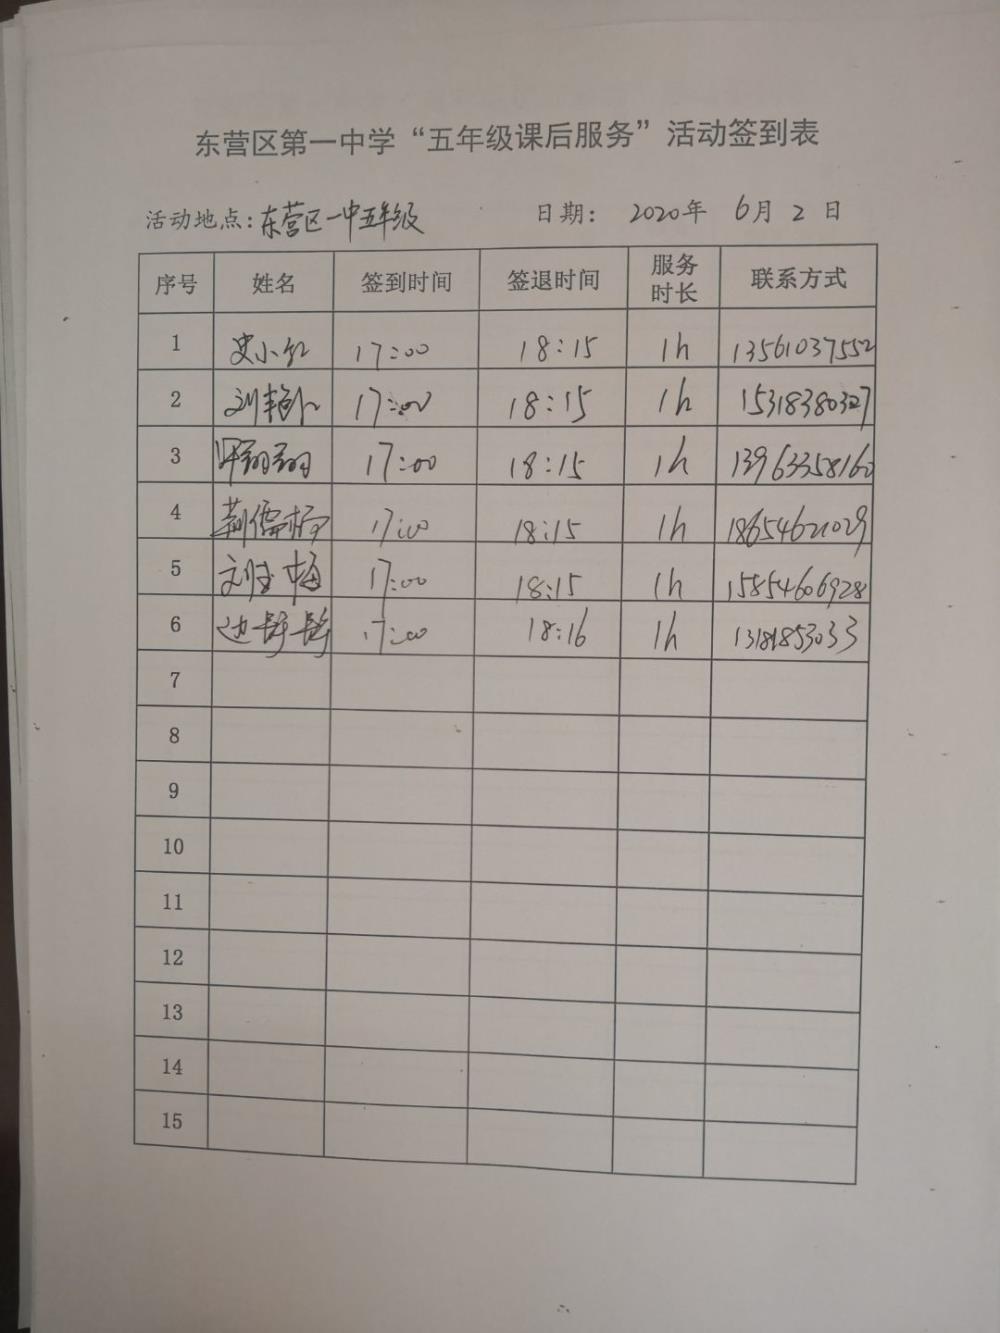 东营区第一中学“五年级课后服务”活动签到表
活动地点：东营区一中五年级 日期： 2020年 6月 2 日
序号 姓名 签到时间 签退时间 服务时长 联系方式
1 史小红 17:00 18:15 1h 13561037552
2 刘艳 17:00 18:15 1h 15318380327
3 翔翔 17:00 18:15 1h 13963358160
4 荆儒 17:00 18:15 1h 18654621029
5 刘 梅 17:00 18:15 1h 15854606928
6 边 17:00 18:16 1h
7
8
9
10
11
12
13
14
15